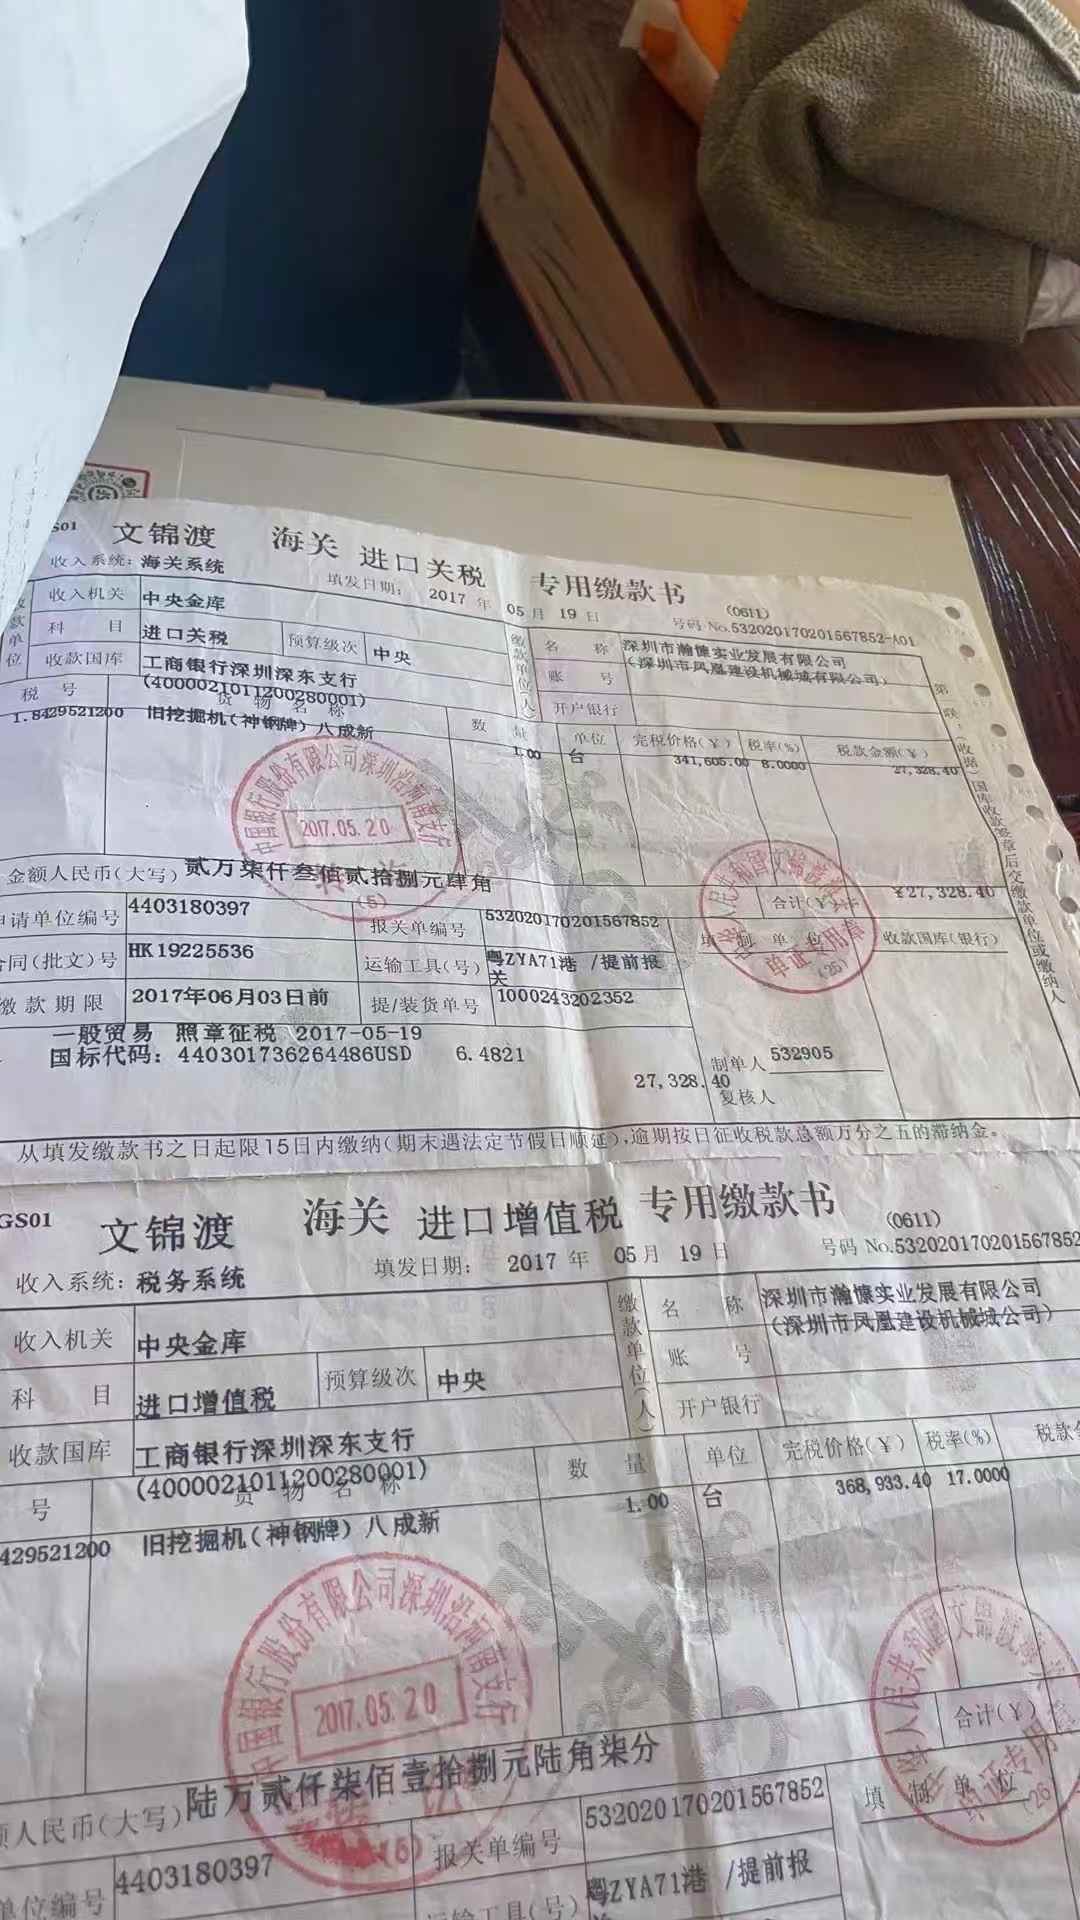 GS01 文锦渡 海关 进口关税 专用缴款书 (0611)
收入系统: 海关系统 填发日期: 2017 年 05 月 19 日 号码 No.532020170201567852-A01
收入机关 中央金库 名 称 深圳市瀚慷实业发展有限公司
(深圳市凤凰建设机械城有限公司)
科 目 进口关税 预算级次 中央 账 号
收款国库 工商银行深圳深东支行
(4000021011200280001) 开户银行
缴款单位(人)
税 号 货 物 名 称 数 量 单位 完税价格(¥) 税率(%) 税款金额(¥)
1.8429521200 旧挖掘机(神钢牌)八成新 1.00 台 341,605.00 8.0000 27,328.40
中国银行股份有限公司深圳沿河南支行
2017.05.20
(5)
金额人民币(大写) 贰万柒仟叁佰贰拾捌元肆角 合计(¥) ¥27,328.40
申请单位编号 4403180397 报关单编号 532020170201567852 填 制 单 位 收款国库(银行)
合同(批文)号 HK19225536 运输工具(号) 粤ZYA71港 /提前报
关
缴款期限 2017年06月03日前 提/装货单号 1000243202352
一般贸易 照章征税 2017-05-19
国标代码: 440301736264486USD 6.4821
27,328.40
制单人 532905
复核人
(25)
国库收款签章后交缴款单位或缴纳人
从填发缴款书之日起限15日内缴纳(期末遇法定节假日顺延),逾期按日征收税款总额万分之五的滞纳金。
GS01 文锦渡 海关 进口增值税 专用缴款书 (0611)
收入系统: 税务系统 填发日期: 2017 年 05 月 19 日 号码 No.532020170201567852
收入机关 中央金库 名 称 深圳市瀚慷实业发展有限公司
(深圳市凤凰建设机械城公司)
科 目 进口增值税 预算级次 中央 账 号
收款国库 工商银行深圳深东支行
(4000021011200280001) 开户银行
缴款单位(人)
号 货 物 名 称 数 量 单位 完税价格(¥) 税率(%) 税款
429521200 旧挖掘机(神钢牌)八成新 1.00 台 368,933.40 17.0000
中国银行股份有限公司深圳沿河南支行
2017.05.20
合计(¥)
人民币(大写) 陆万贰仟柒佰壹拾捌元陆角柒分
单位编号 4403180397 报关单编号 532020170201567852 填 制 单 位
运输工具(号) 粤ZYA71港 /提前报